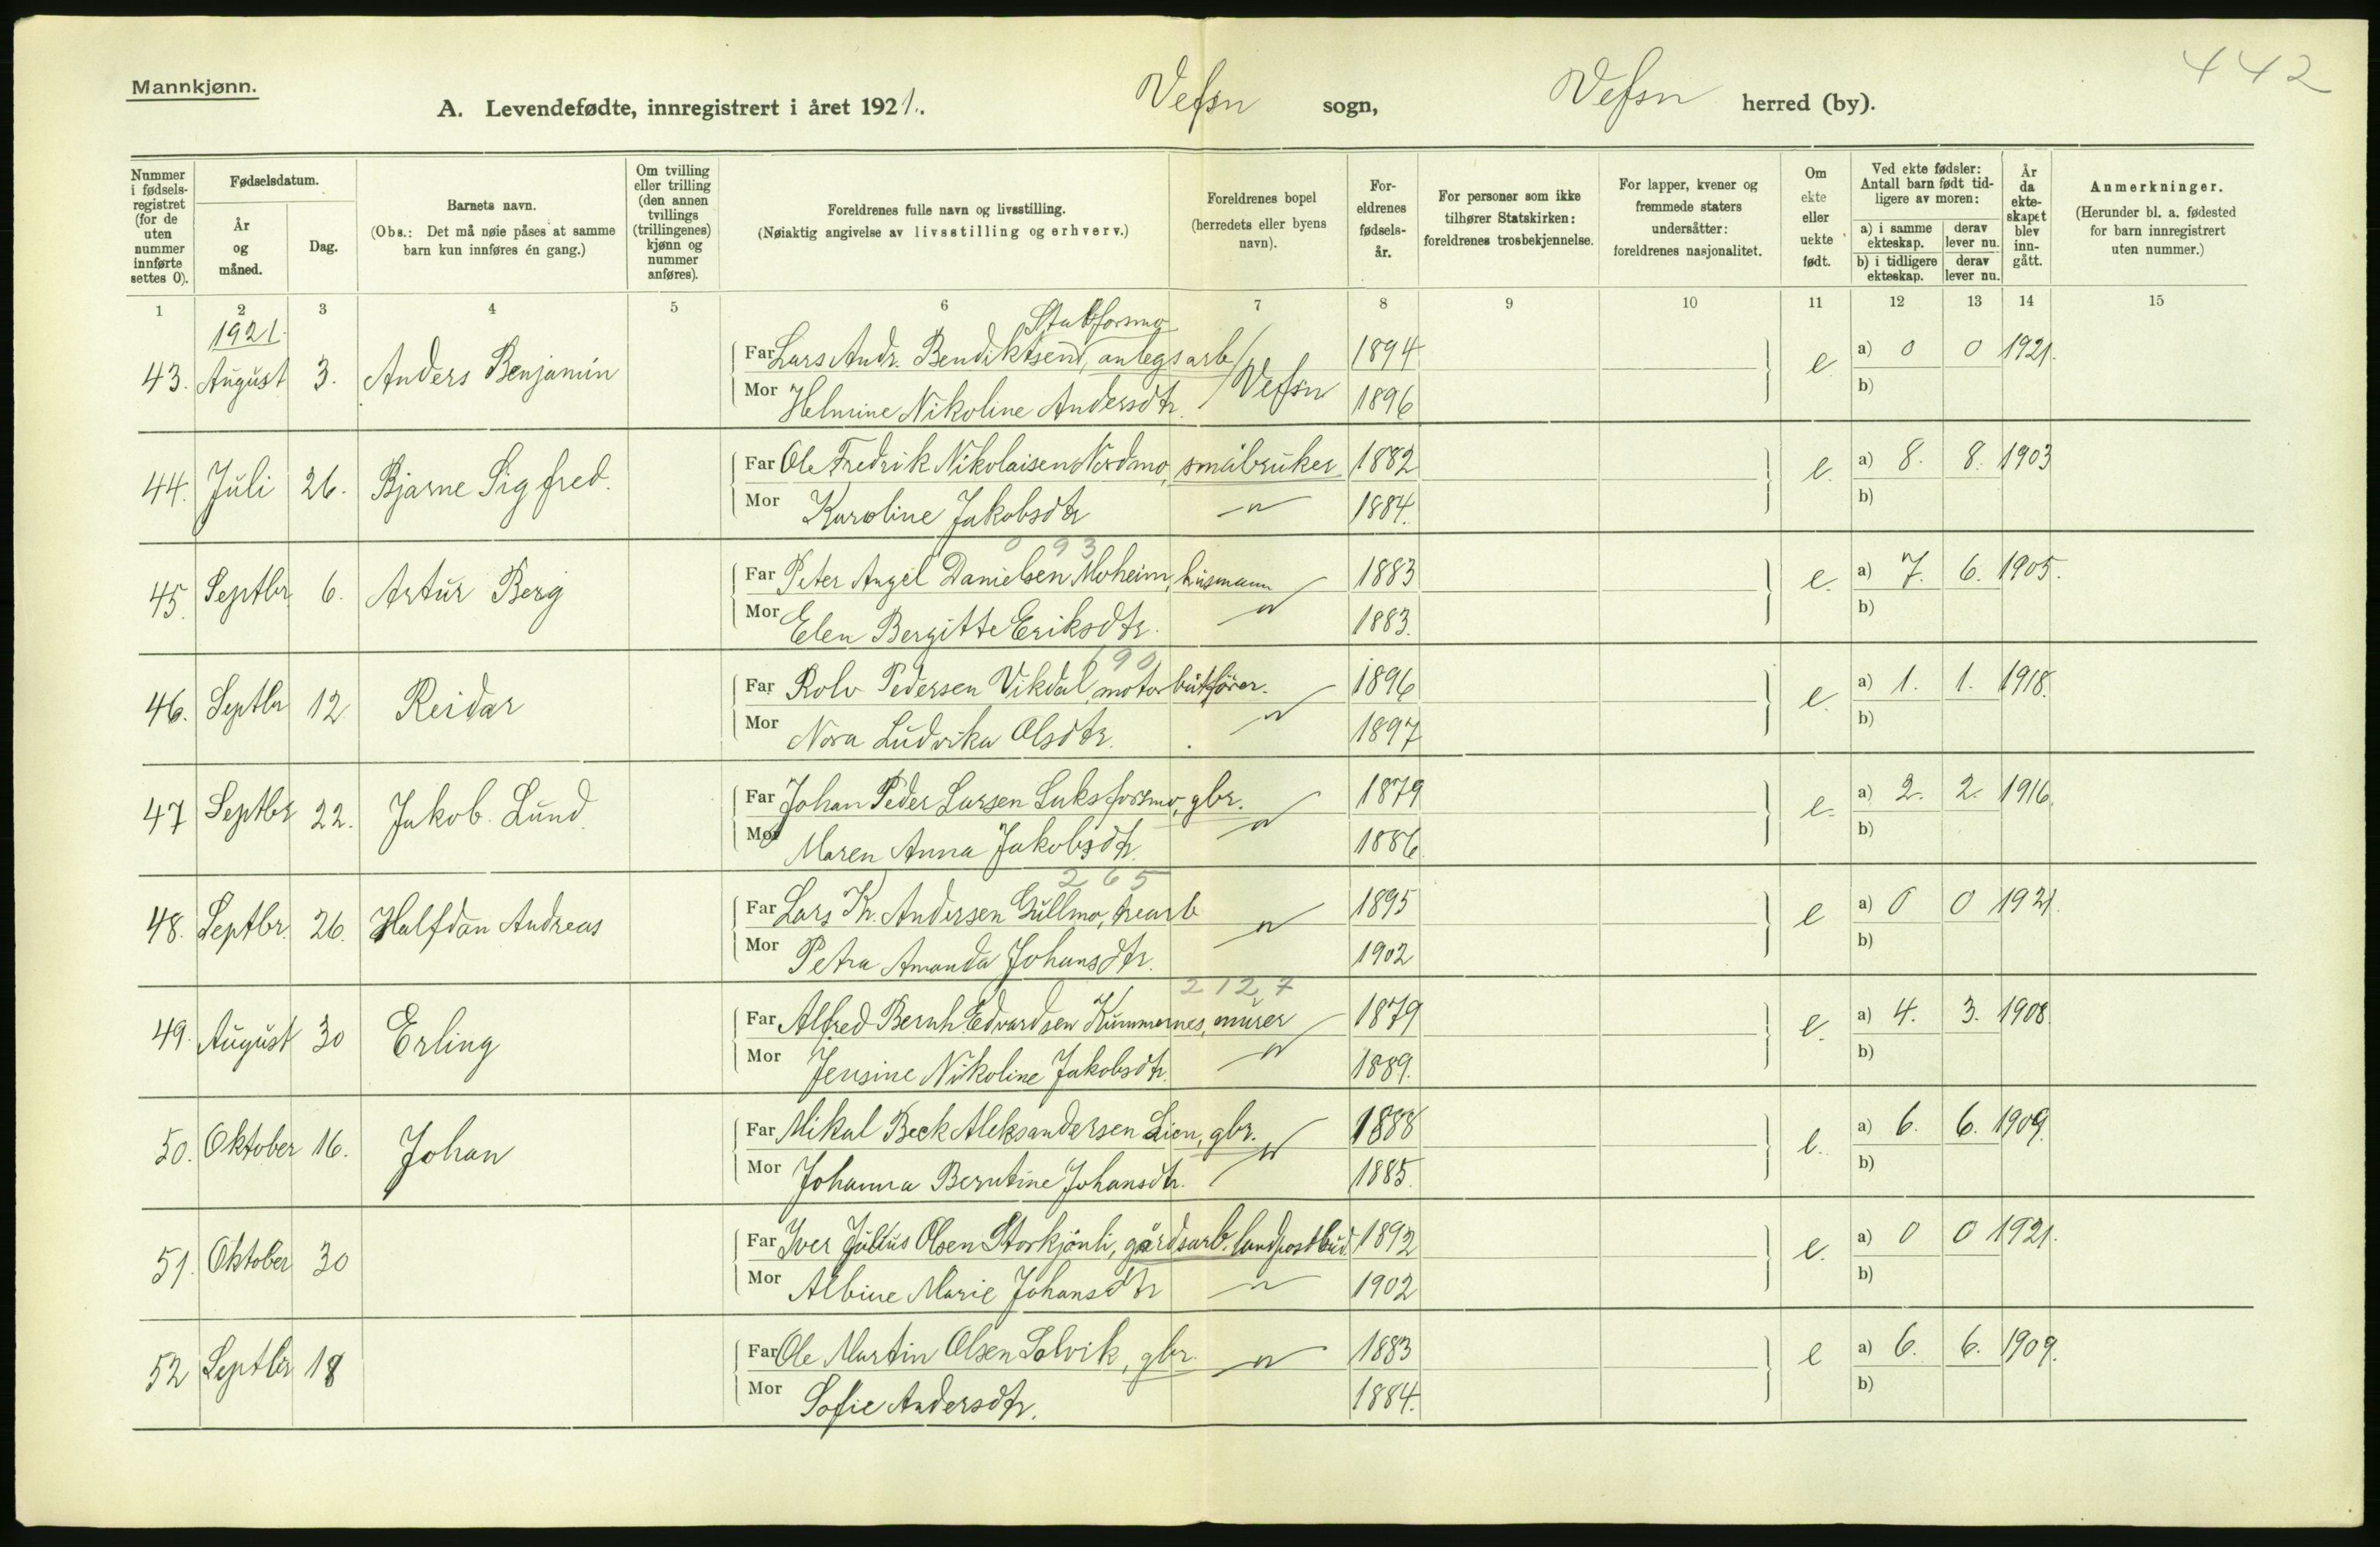 442
Mannkjønn.
A. Levendefødte, innregistrert i året 1921. Vefsn sogn, Vefsn herred (by).
Nummer i fødselsregistret (for de uten nummer innførte settes 0).
Fødselsdatum.
År og måned.
Dag.
Barnets navn.
(Obs.: Det må nøie påses at samme barn kun innføres én gang.)
Om tvilling eller trilling (den annen tvillings (trillingenes) kjønn og nummer anføres).
Foreldrenes fulle navn og livsstilling.
(Nøiaktig angivelse av livsstilling og erhverv.)
Foreldrenes bopel
(herredets eller byens navn).
Foreldrenes fødselsår.
For personer som ikke tilhører Statskirken: foreldrenes trosbekjennelse.
For lapper, kvener og fremmede staters undersåtter: foreldrenes nasjonalitet.
Om ekte eller uekte født.
Ved ekte fødsler: Antall barn født tidligere av moren:
a) i samme ekteskap. derav lever nu.
b) i tidligere ekteskap. derav lever nu.
År da ekteskapet blev inngått.
Anmerkninger.
(Herunder bl. a. fødested for barn innregistrert uten nummer.)
1 2 3 4 5 6 7 8 9 10 11 12 13 14 15
1921.
43. August 3. Anders Benjamin Far Lars Andr. Bendiktsen, anlegsarb. 1894 e a) 0 0 1921.
Mor Helmine Nikoline Andersdtr. Vefsn 1896 b)
44. Juli 26. Bjarne Sigfred. Far Ole Fredrik Nikolaisen Nordmo, småbruker 1882 e. a) 8. 8. 1903
Mor Karoline Jakobsdtr -"- 1884. b)
0 93
45. Septbr. 6. Artur Berg Far Peter Angel Danielsen Moheim, husmann 1883 e. a) 7. 6. 1905.
Mor Elen Bergitte Eriksdtr. -"- 1883. b)
190
46. Septbr 12 Reidar Far Rolv Pedersen Vikdal, motorbåtfører. 1896 e. a) 1. 1. 1918.
Mor Nora Ludvika Olsdtr. -"- 1897 b)
47 Septbr 22. Jakob Lund Far Johan Peder Larsen Luksforsmo, gbr. 1879 e. a) 2. 2. 1916.
Mor Maren Anna Jakobsdtr. -"- 1886 b)
265
48. Septbr. 26. Halfdan Andreas Far Lars Kr. Andersen Gullmo, trearb -"- 1895 e a) 0 0 1921.
Mor Petra Amanda Johansdtr. 1902 b)
212,7
49. August 30 Erling Far Alfred Bernh Edvardsen Kummernes, murer 1879 e. a) 4. 3. 1908
Mor Jensine Nikoline Jakobsdtr. -"- 1889. b)
50. Oktober 16. Johan Far Mikal Beck Aleksandersen Lien, gbr. 1888 e. a) 6. 6. 1909.
Mor Johanna Berntine Johansdtr. -"- 1885. b)
51. Oktober 30 Far Iver Julius Olsen Storkjønli, gårdsarb. landpostbud. 1892 e. a) 0 0 1921.
Mor Albine Marie Johansdtr -"- 1902 b)
52 Septbr 18 Far Ole Martin Olsen Solvik, gbr. -"- 1883 e a) 6. 6. 1909.
Mor Sofie Andersdtr. 1884. b)